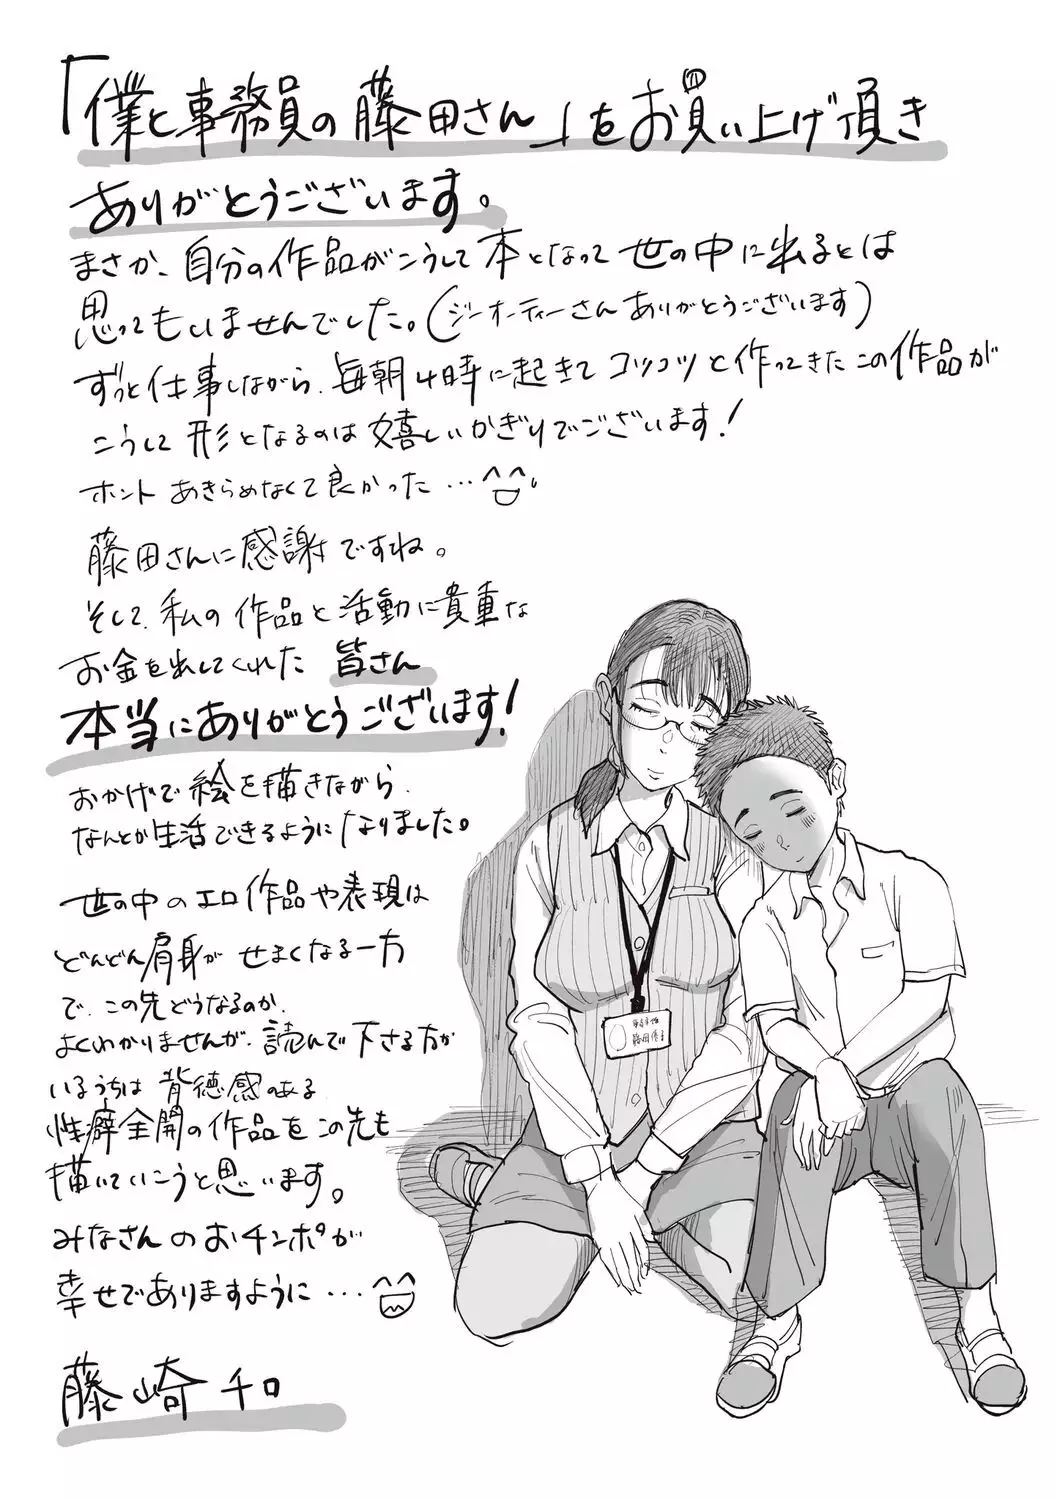 「僕と事務員の藤田さん」をお買い上げ頂き
ありがとうございます。
まさか、自分の作品がこうして本となって世の中に出るとは
思ってもいませんでした。(ジーオーティーさんありがとうございます)
ずっと仕事しながら、毎朝4時に起きてコツコツと作ってきたこの作品が
こうして形となるのは嬉しいかぎりでございます!
ホントあきらめなくて良かった…
藤田さんに感謝ですね。
そして、私の作品と活動に貴重な
お金を出してくれた皆さん
本当にありがとうございます!
おかげで絵を描きながら、
なんとか生活できるようになりました。
世の中のエロ作品や表現は
どんどん肩身がせまくなる一方
で、この先どうなるのか、
よくわかりませんが、読んで下さる方が
いるうちは背徳感のある
性癖全開の作品をこの先も
描いていこうと思います。
みなさんのおチンポが
幸せでありますように…
藤崎チロ